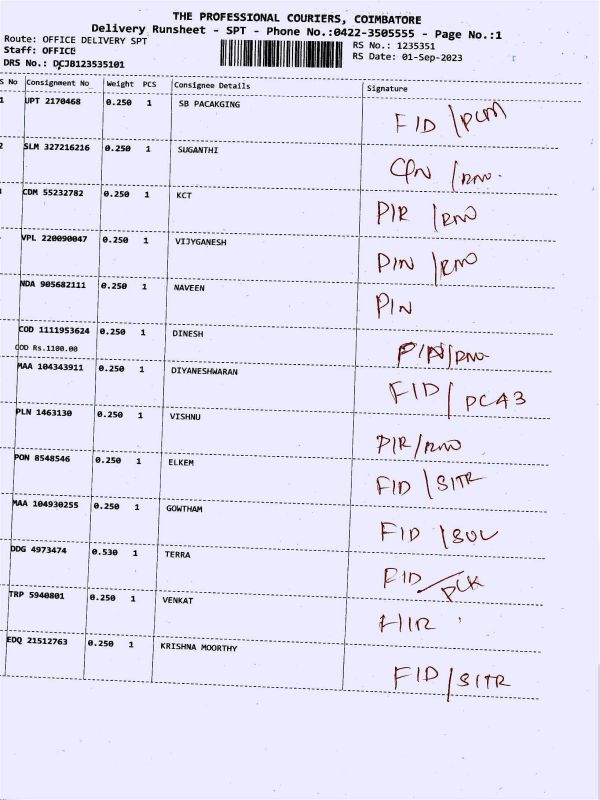 THE PROFESSIONAL COURIERS, COIMBATORE
Delivery Runsheet - SPT - Phone No.:0422-3505555 - Page No.:1
Route: OFFICE DELIVERY SPT RS No.: 1235351
Staff: OFFICE RS Date: 01-Sep-2023
DRS No.: DCJB123535101
S No Consignment No Weight PCS Consignee Details Signature
1 UPT 2170468 0.250 1 SB PACAKGING FID / PCM
2 SLM 327216216 0.250 1 SUGANTHI
CDM 55232782 0.250 1 KCT PIR
VPL 220090047 0.250 1 VIJYGANESH PIN
NDA 905682111 0.250 1 NAVEEN PIN
COD 1111953624 0.250 1 DINESH
COD Rs.1100.00
MAA 104343911 0.250 1 DIYANESHWARAN FID /
PLN 1463130 0.250 1 VISHNU PIR /
PON 8548546 0.250 1 ELKEM FID / SITR
MAA 104930255 0.250 1 GOWTHAM FID / SUL
DDG 4973474 0.530 1 TERRA FID /
TRP 5940801 0.250 1 VENKAT
EDQ 21512763 0.250 1 KRISHNA MOORTHY FID / SITR